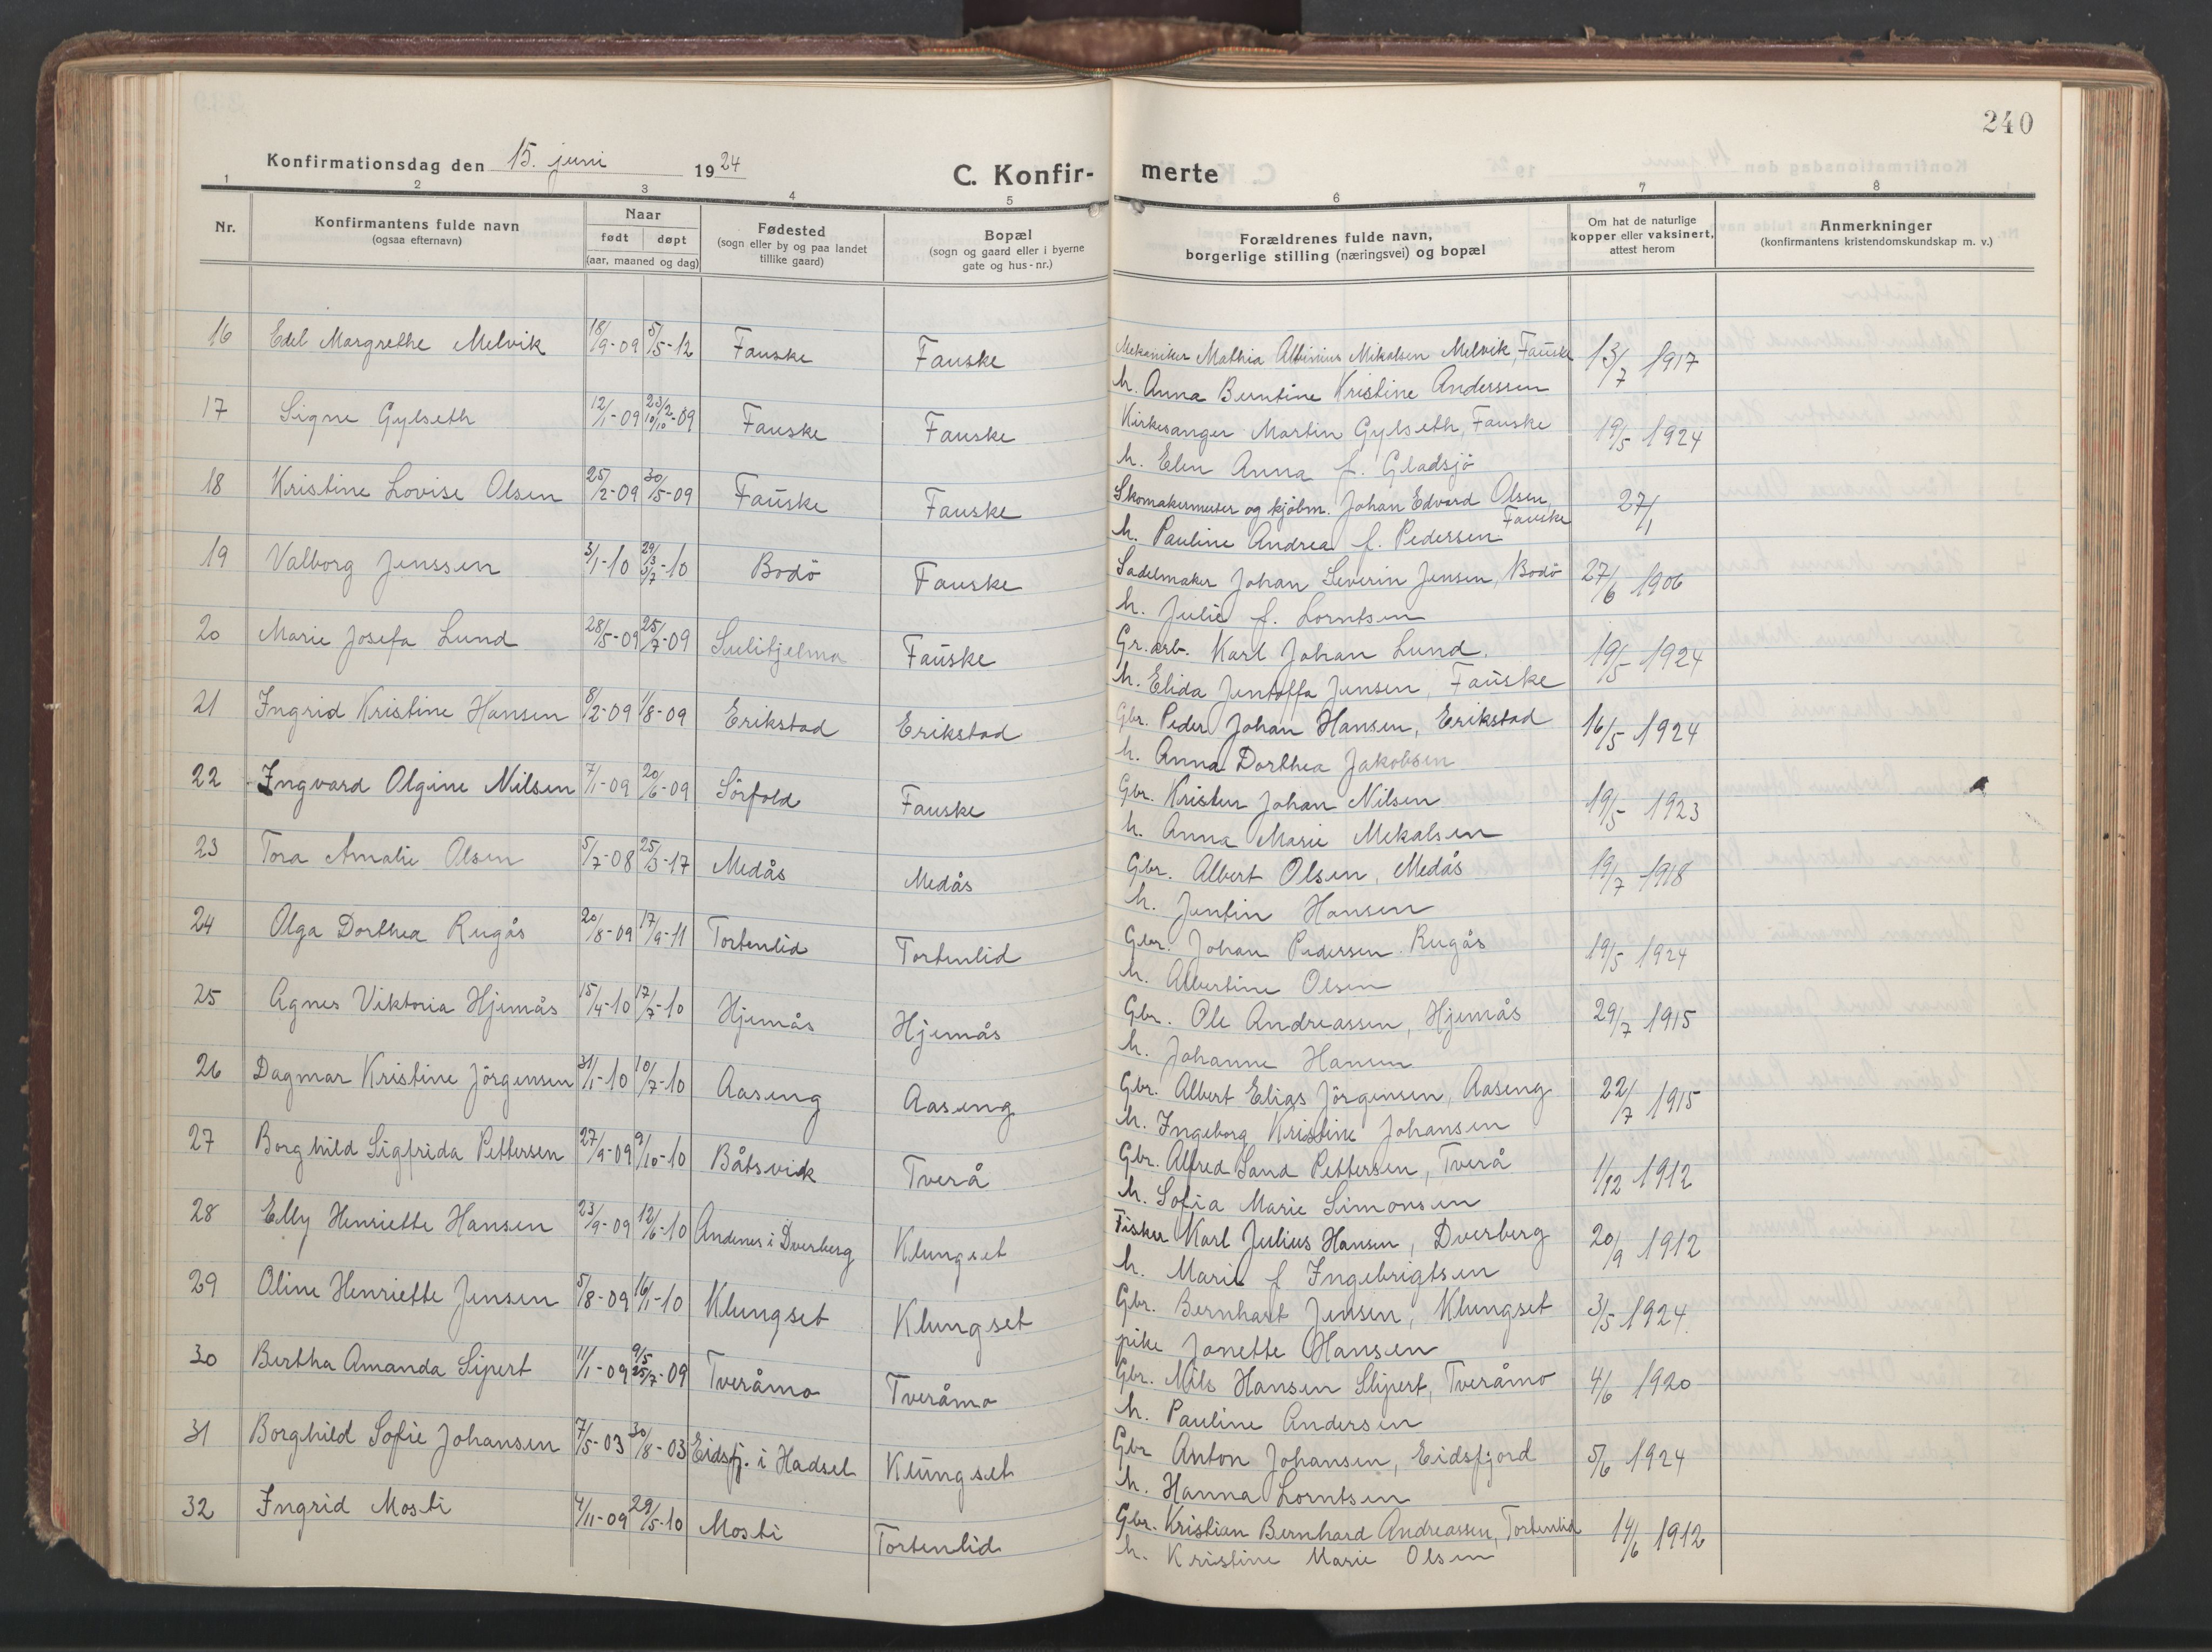 240
Konfirmationsdag den 15. juni 1924
C. Konfir- merte
1 2 3 4 5 6 7 8
Nr.
Konfirmantens fulde navn
(ogsaa efternavn)
Naar
født døpt
(aar, maaned og dag)
Fødested
(sogn eller by og paa landet
tillike gaard)
Bopæl
(sogn og gaard eller i byerne
gate og hus-nr.)
Forældrenes fulde navn,
borgerlige stilling (næringsvei) og bopæl
Om hat de naturlige
kopper eller vaksinert,
attest herom
Anmerkninger
(konfirmantens kristendomskundskap m. v.)
16 Edel Margrethe Melvik 18/9-09 5/5-12 Fauske Fauske Mekaniker Mathia Albinius Mikalsen Melvik, Fauske 13/7 1917
h. Anna Berntine Kristine Anderssen
17 Signe Gylseth 12/1-09 23/2 10/10-09 Fauske Fauske Kirkesanger Martin Gylseth, Fauske 19/5 1924
h. Elen Anna f. Gladsjö
18 Kristine Lovise Olsen 25/2-09 30/5-09 Fauske Fauske Skomakermester og kjøbm. Johan Edvard Olsen, 27/1
Fauske
h. Pauline Andrea f. Pedersen
19 Valborg Jenssen 3/1-10 29/3 3/7-10 Bodö Fauske Sadelmaker Johan Severin Jensen, Bodö 27/6 1906
h. Julie f. Lorntsen
20 Marie Josefa Lund 28/5-09 25/7-09 Sulitjelma Fauske Gr.arb. Karl Johan Lund. 19/5 1924
h. Elida Jentoffa Jensen, Fauske
21 Ingrid Kristine Hansen 8/2-09 1/8-09 Erikstad Erikstad Gbr. Peder Johan Hansen, Erikstad 16/5 1924
h. Anna Dorthea Jakobsen
22 Ingvard Olgine Nilsen 7/1-09 20/6-09 Sörfold Fauske Gbr. Kristen Johan Nilsen 19/5 1923
h. Anna Marie Mekalsen
23 Tora Amalie Olsen 5/7-08 25/3-17 Medås Medås Gbr. Albert Olsen, Medås 19/7 1918
h. Jentin Hansen
24 Olga Dorthea Rugås 20/8-09 17/9-11 Tortenlid Tortenlid Gbr. Johan Pedersen Rugås 19/5 1924
h. Albertine Olsen
25 Agnes Viktoria Hjemås 15/4-10 17/7-10 Hjemås Hjemås Gbr. Ole Andreassen, Hjemås 29/7 1915
h. Johanne Hansen
26 Dagmar Kristine Jörgensen 31/1-10 10/7-10 Aaseng Aaseng Gbr. Albert Elias Jörgensen, Aaseng 22/7 1915
h. Ingeborg Kristine Johansen
27 Borghild Sigfrida Pettersen 27/9-09 9/10-10 Båtsvik Tverå Gbr. Alfred Sand Pettersen, Tverå 1/12 1912
h. Sofia Marie Simonsen
28 Elly Henriette Hansen 23/9-09 12/6-10 Andenes i Dverberg Klungset Fisker Karl Julius Hansen, Dverberg 20/9 1912
h. Marie f Ingebrigtsen
29 Oline Henriette Jensen 5/8-09 16/1-10 Klungset Klungset Gbr. Bernhart Jensen, Klungset 3/5 1924.
pike Jonette Hansen
30 Bertha Amanda Sipert 11/1-09 9/5 25/7-09 Tveråmo Tveråmo Gbr. Nils Hansen Slipert, Tveråmo 4/6 1920
h. Pauline Andersen
31 Borghild Sofie Johansen 7/5-03 30/8-03 Eidsfj. i Hadsel Klungset Gbr Anton Johansen, Eidsfjord 5/6 1924
h. Hanna Lorntsen
32 Ingrid Mosti 4/11-09 29/5-10 Mosti Tortenlid Gbr. Kristian Bernhard Andreassen, Tortenlid 14/6 1912
h. Kristine Marie Olsen